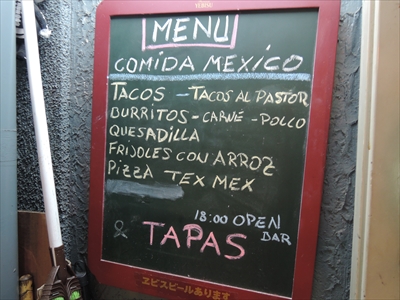 YEBISU
MENU
COMIDA MEXICO
TACOS - TACOS AL PASTOR
BURRITOS - CARNE - POLLO
QUESADILLA
FRIJOLES CON ARROZ
PIZZA TEX MEX
18:00 OPEN
BAR
TAPAS
ヱビスビールあります